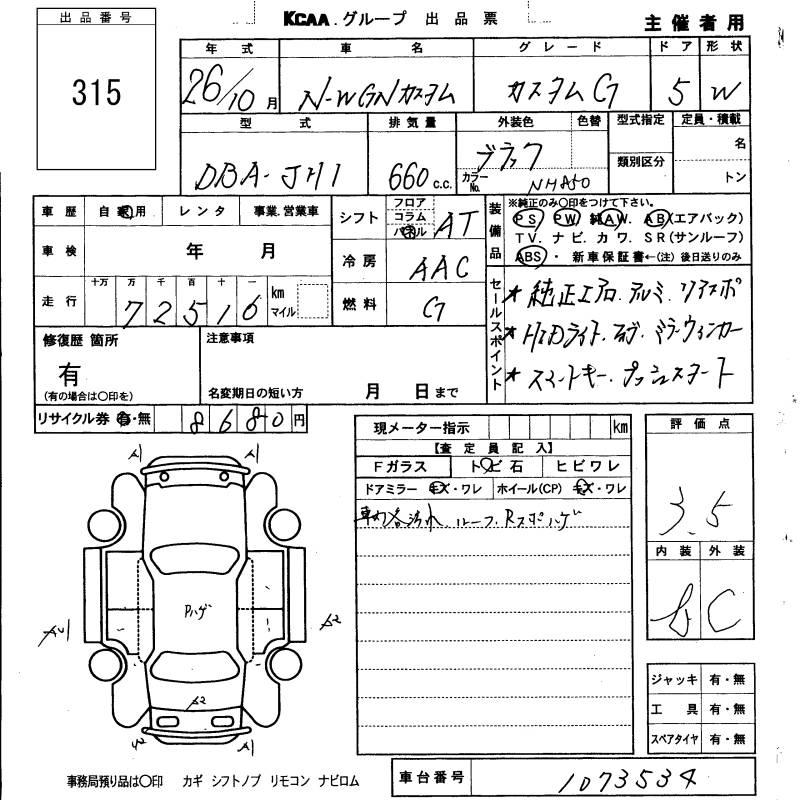 出品番号
KCAA.グループ 出品票
主催者用
315
年式 車名 グレード ドア 形状
26/10月 N-WGNカスタム カスタムG 5 W
型式 排気量 外装色 色替 型式指定 定員・積載
DBA-JH1 660c.c. ブラック 名
類別区分
カラーNo. NH850 トン
車歴 自家用 レンタ 事業.営業車
シフト フロア コラム パネル AT
装備品 ※純正のみ○印をつけて下さい。
PS PW 純AW. AB(エアバック)
TV. ナビ. カワ. SR(サンルーフ)
ABS・新車保証書←(注)後日送りのみ
車検 年 月
冷房 AAC
走行 十万 万 千 百 十 一
72516 km マイル
燃料 G
セールスポイント
★純正エアロ.アルミ.リアスポ
★HIDライト.フォグ.ミラーウィンカー
★スマートキー.プッシュスタート
修復歴 箇所
有
(有の場合は○印を)
注意事項
名変期日の短い方 月 日まで
リサイクル券 有・無 8680円
現メーター指示 km
【査定員記入】
Fガラス トビ石 ヒビワレ
ドアミラー キズ・ワレ ホイール(CP) キズ・ワレ
車内各汚れ ルーフ.Rスポハゲ
評価点
3.5
内装 外装
B C
A1 A1
Pハゲ
A2
A2
A2 A1
ジャッキ 有・無
工具 有・無
スペアタイヤ 有・無
事務局預り品は○印 カギ シフトノブ リモコン ナビロム
車台番号 1073534